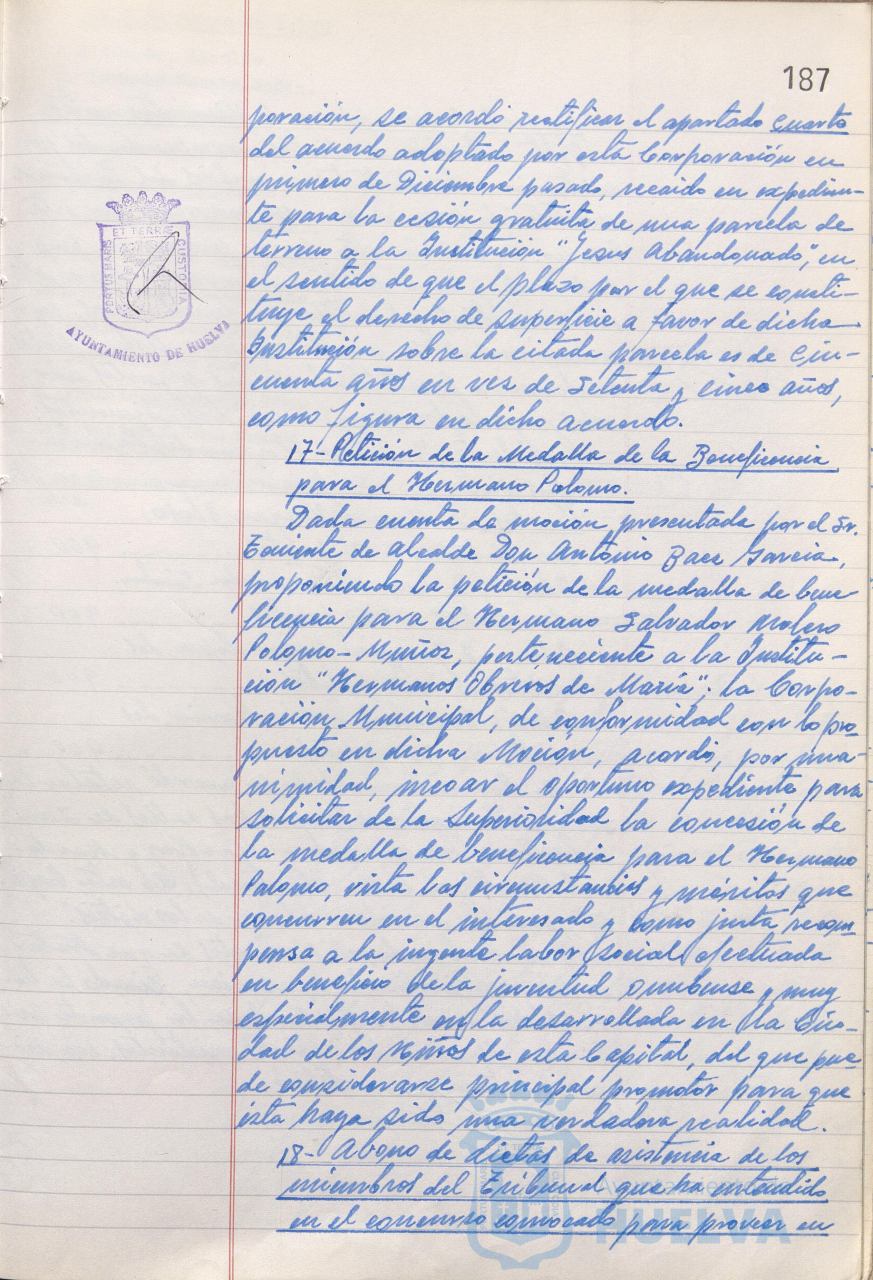 187
poración, se acordó rectificar el apartado cuarto
del acuerdo adoptado por esta Corporación en
primero de Diciembre pasado, recaído en expedien-
te para la cesión gratuita de una parcela de
terreno a la Institución "Jesus Abandonado", en
el sentido de que el plazo por el que se consti-
tuye el derecho de superficie a favor de dicha
Institución sobre la citada parcela es de Cin-
cuenta años en vez de Setenta y cinco años,
como figura en dicho acuerdo.
17- Petición de la Medalla de la Beneficencia
para el Hermano Palomo.
Dada cuenta de moción presentada por el Sr.
Teniente de Alcalde Don Antonio Baez Garcia,
proponiendo la petición de la medalla de bene-
ficencia para el Hermano Salvador Molero
Palomo-Muñoz, perteneciente a la Institu-
ción "Hermanos Obreros de María"; la Corpo-
ración Municipal, de conformidad con lo pro
puesto en dicha Moción, acordó, por una-
nimidad, incoar el oportuno expediente para
solicitar de la Superioridad la concesión de
la medalla de beneficencia para el Hermano
Palomo, vista las circunstancias y méritos que
concurren en el interesado y como justa recom
pensa a la ingente labor social efectuada
en beneficio de la juventud onubense y muy
especialmente en la desarrollada en la Ciu-
dad de los Niños de esta Capital, del que pue-
de considerarse principal promotor para que
ésta haya sido una verdadera realidad.
18- Abono de dietas de asistencia de los
miembros del Tribunal que ha entendido
en el concurso convocado para proveer en
PORTUS MARIS ET TERRÆ CUSTODIA
AYUNTAMIENTO DE HUELVA
HUELVA